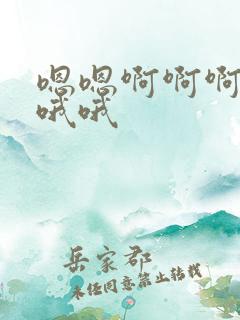 嗯嗯啊啊啊
哦哦
岳家郡
未经同意禁止转载